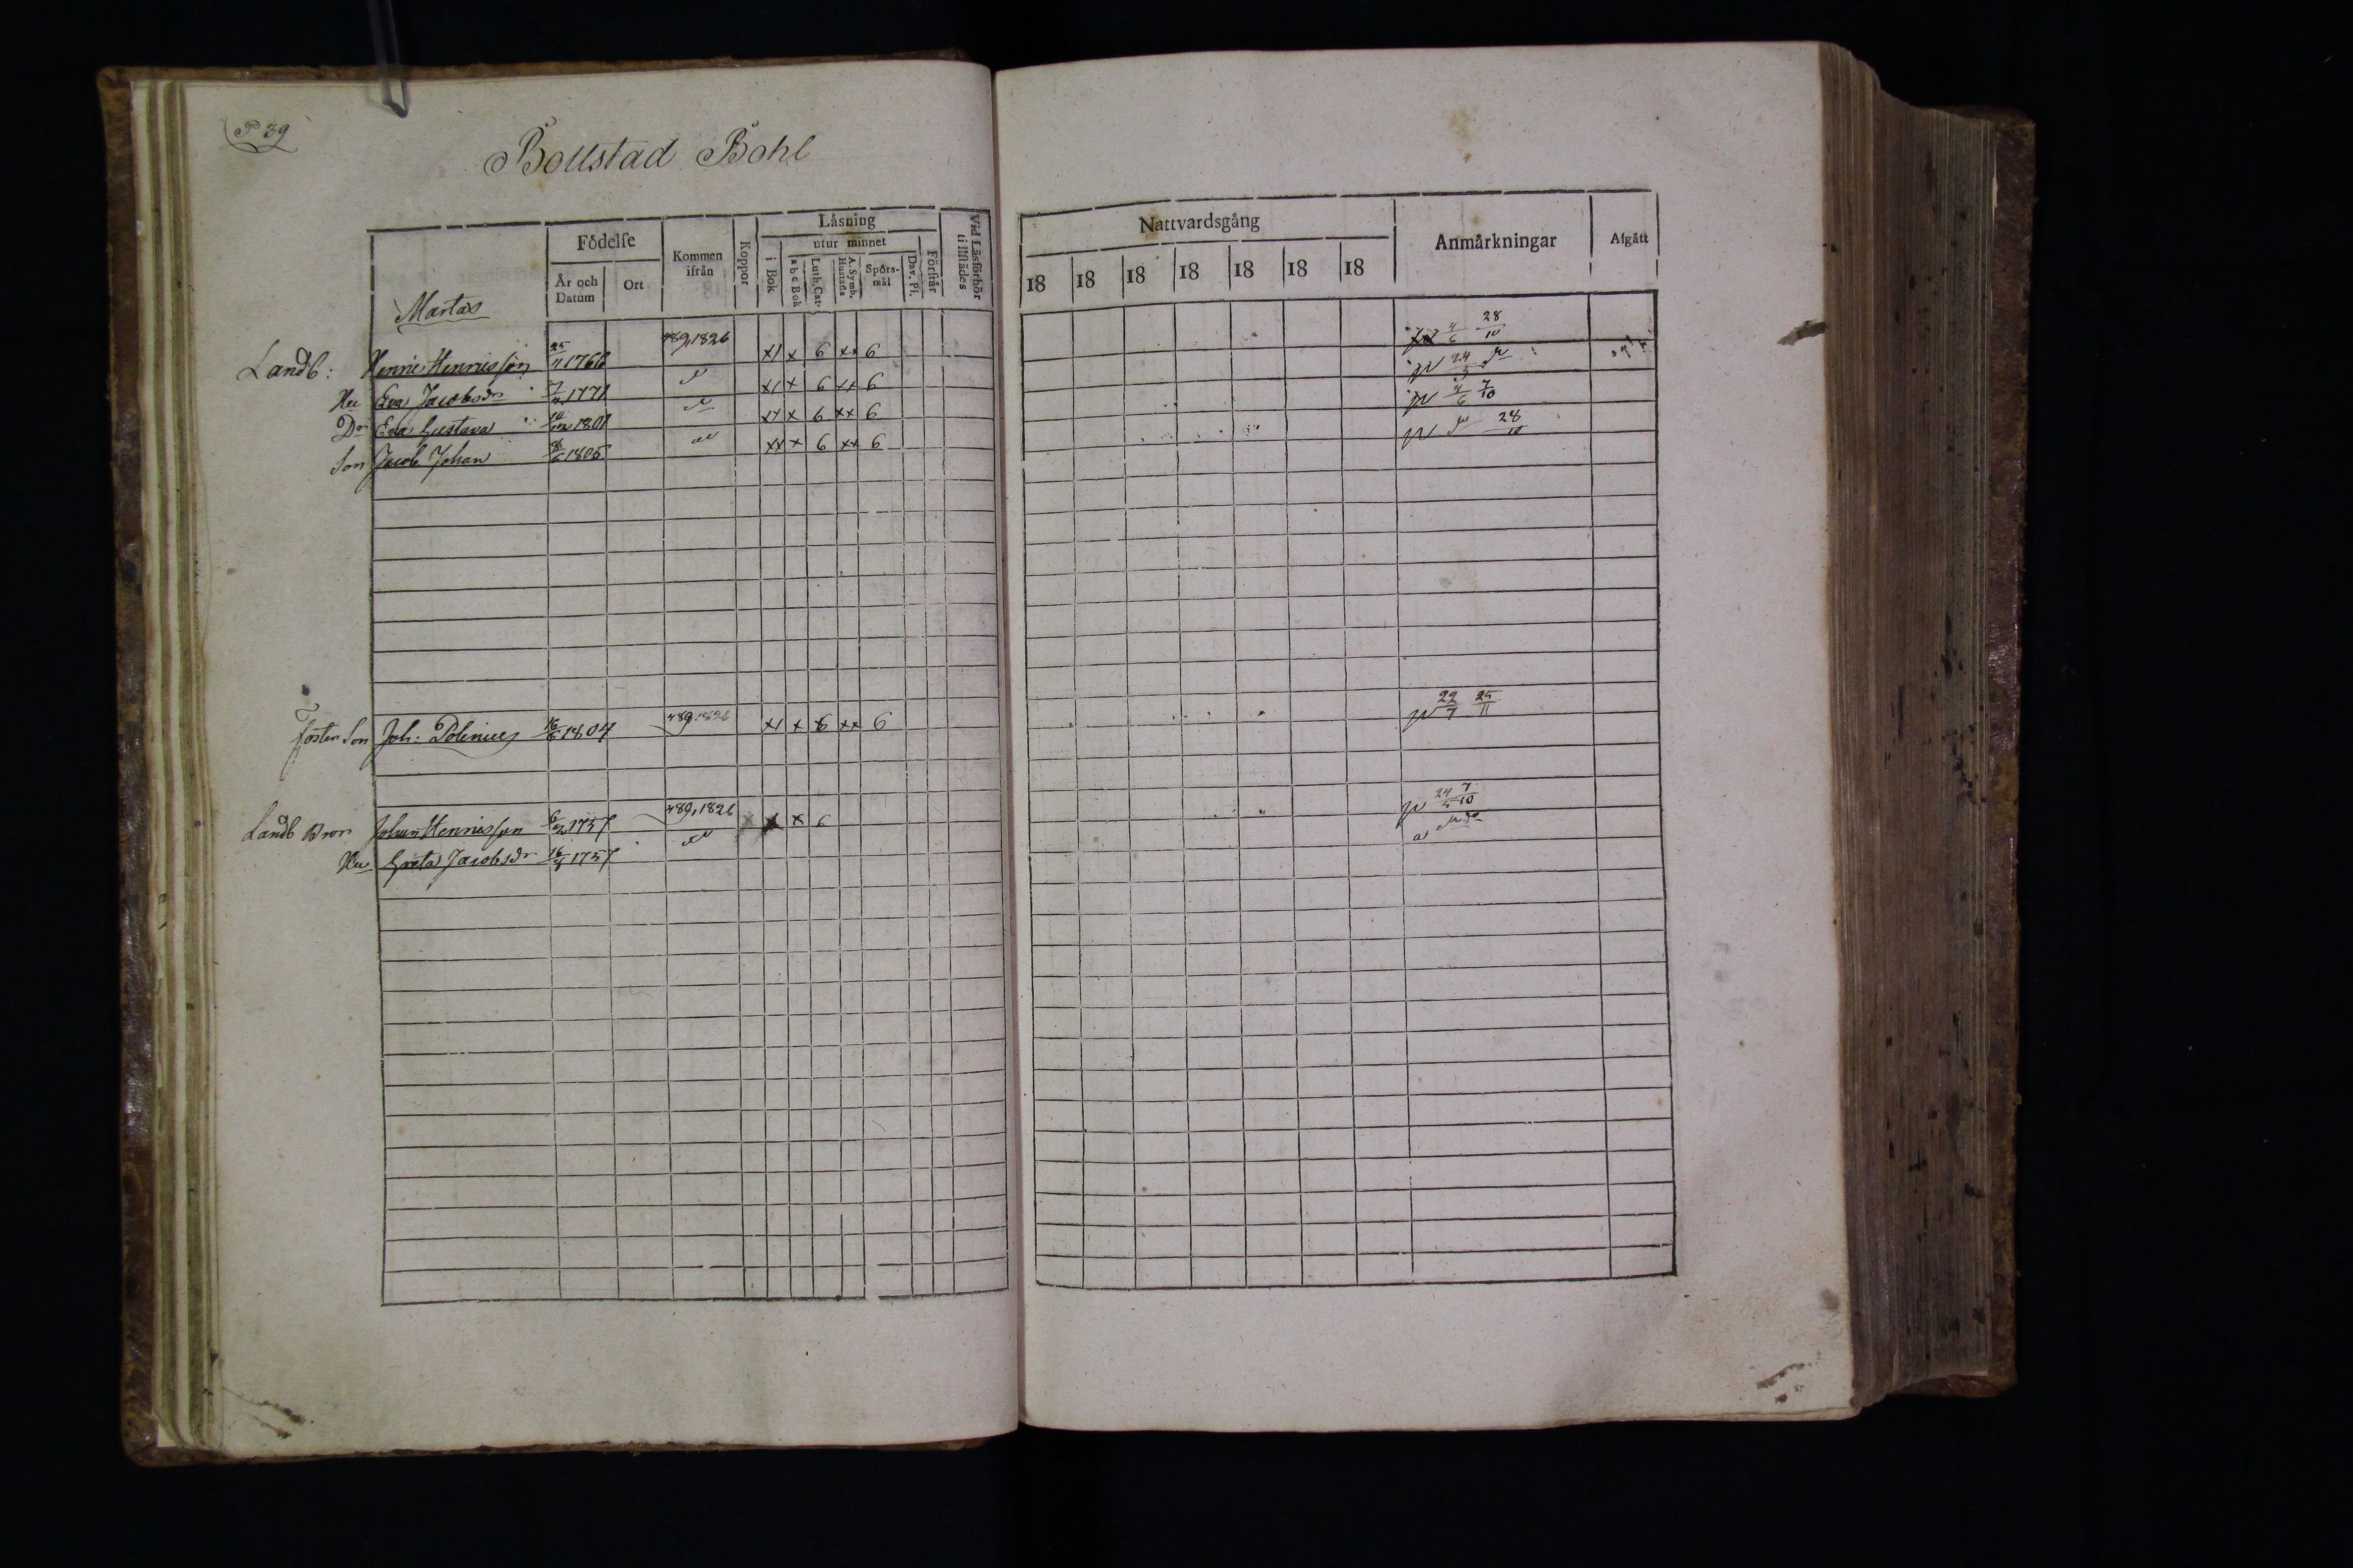 P 39
Bollstad Bohl
Födelse
Kommen ifrån
Koppor
Läsning
utur minnet
i Bok
a b c Bok
Luth. Cat.
A. Symb. Hustafla
Spörsmål
Dav. Ps.
Förstår
Vid Läsförhör tillstädes
År och Datum
Ort
Nattvardsgång
18 18 18 18 18 18 18
Anmärkningar
Afgått
Martas
Landb: Henric Henricsson 25/11 1766 489,1826 x1 x 6 xx 6 4/6 28/10
Hu Eva Jacobsdr 1771 x1 x 6 xx 6 24/5
Dr Eva Gustava 1801 x 6 xx 6 4/6 7/10
Son Jacob Johan 1805 xx x 6 xx 6 28/10
foster Son Joh: Polenius 16/6 1804 489,1826 x1 x 6 xx 6 22/7 25/11
Landb Bror Johan Henricsson 6/2 1757 489,1826 x x 6 24/5 7/10
Hu Greta Jacobsdr 1757